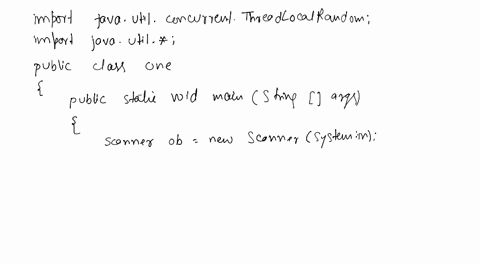 import java.util.concurrent.ThreadLocalRandom;
import java.util.*;
public class one
{
public static void main (String [] args)
{
scanner ob = new Scanner (System.in);